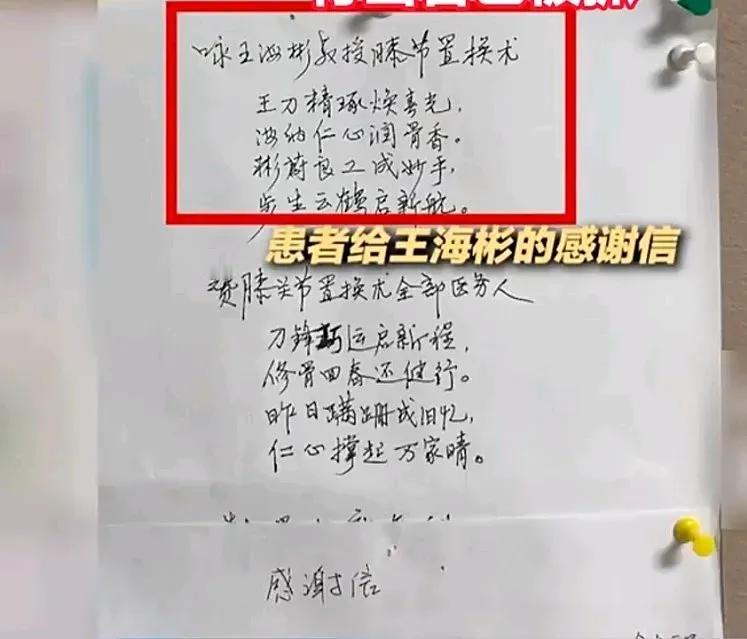 咏王海彬教授膝节置换术
王刀精琢焕春光，
海纳仁心润骨香。
彬蔚良工成妙手，
步生云鹤启新航。
患者给王海彬的感谢信
赞膝关节置换术全部医务人
刀锋巧运启新程，
修骨回春还健行。
昨日蹒跚成旧忆，
仁心撑起万家晴。
感谢信